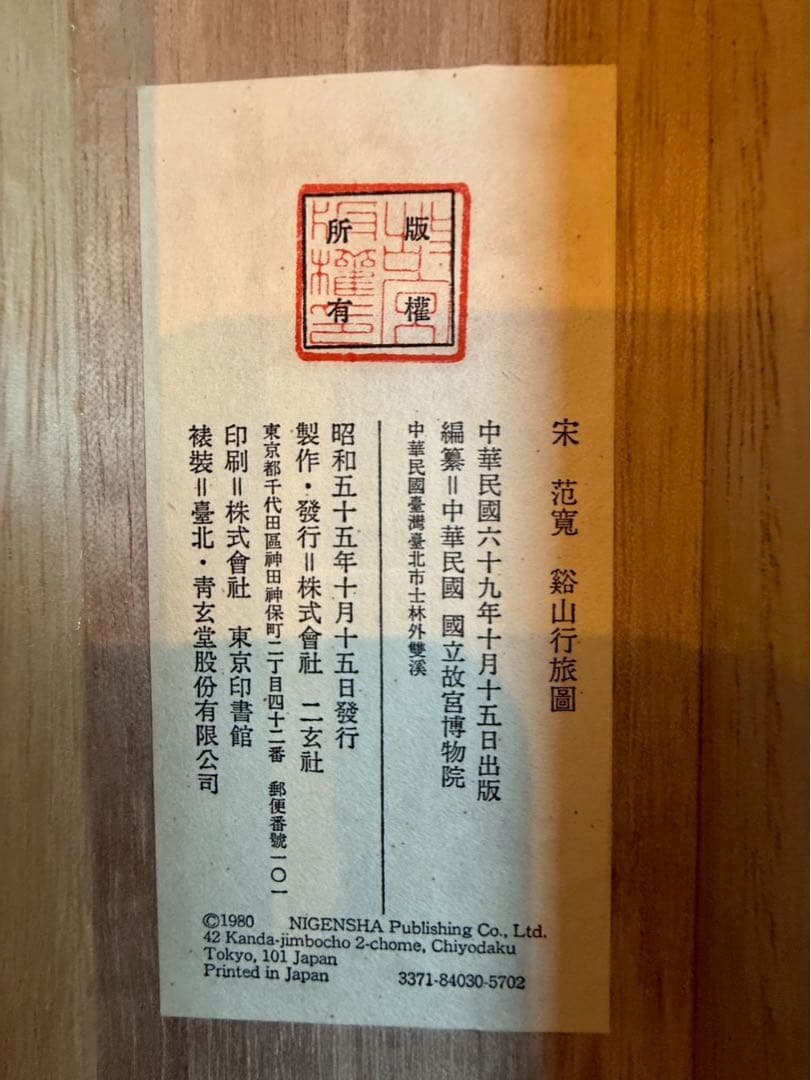 版權
所有
宋　范寬　谿山行旅圖
中華民國六十九年十月十五日出版
編纂＝中華民國　國立故宮博物院
中華民國臺灣臺北市士林外雙溪
昭和五十五年十月十五日發行
製作・發行＝株式會社　二玄社
東京都千代田區神田神保町二丁目四十二番　郵便番號一〇一
印刷＝株式會社　東京印書館
裱裝＝臺北・青玄堂股份有限公司
©1980　NIGENSHA Publishing Co., Ltd.
42 Kanda-jimbocho 2-chome, Chiyodaku
Tokyo, 101 Japan
Printed in Japan　3371-84030-5702